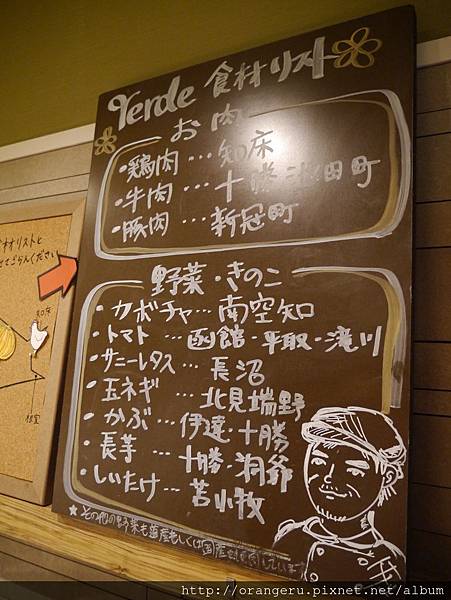 Verde 食材リスト
お肉
・鶏肉…知床
・牛肉…十勝清田町
・豚肉…新冠町
野菜・きのこ
・カボチャ…南空知
・トマト…函館・平取・滝川
・サニーレタス…長沼
・玉ネギ…北見端野
・かぶ…伊達・十勝
・長芋…十勝・洞爺
・しいたけ…苫小牧
★その他の野菜も道産もしくは国産
材リストと
せてごらんください
知床
http://orangeru.pixnet.net/album